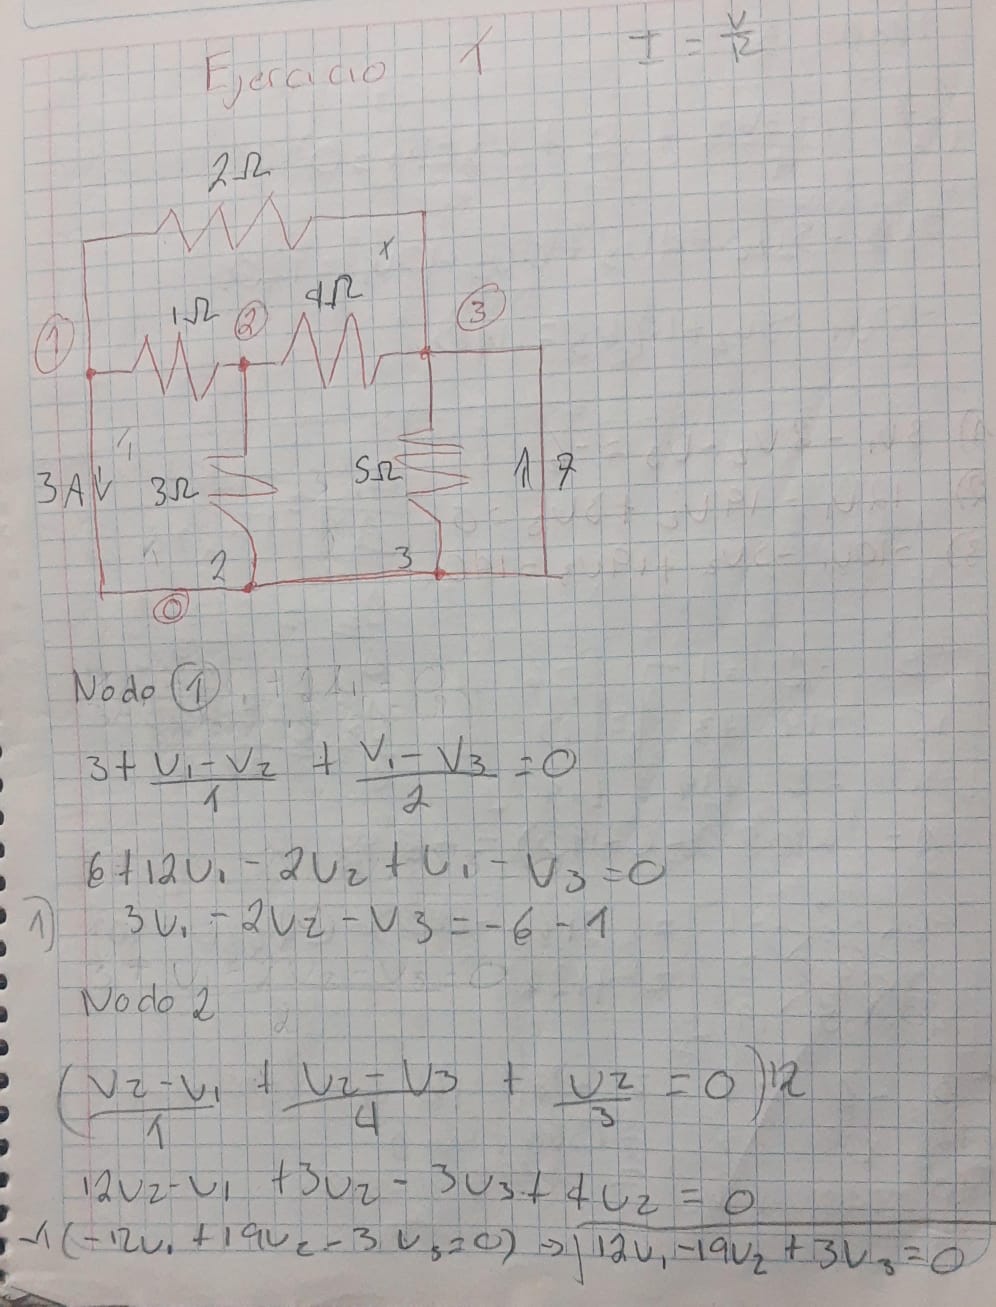 Ejercicio 1
I = V/R
2Ω
1Ω ② 4Ω ③
①
3A 3Ω 5Ω 7
2 3
⓪
Nodo ①
3 + (V₁ - V₂)/1 + (V₁ - V₃)/2 = 0
6 + 12V₁ - 2V₂ + V₁ - V₃ = 0
1) 3V₁ - 2V₂ - V₃ = -6 - 1
Nodo 2
((V₂ - V₁)/1 + (V₂ - V₃)/4 + V₂/3 = 0) 12
12V₂ - V₁ + 3V₂ - 3V₃ + 4V₂ = 0
-1 (-12V₁ + 19V₂ - 3V₃ = 0) → 12V₁ - 19V₂ + 3V₃ = 0